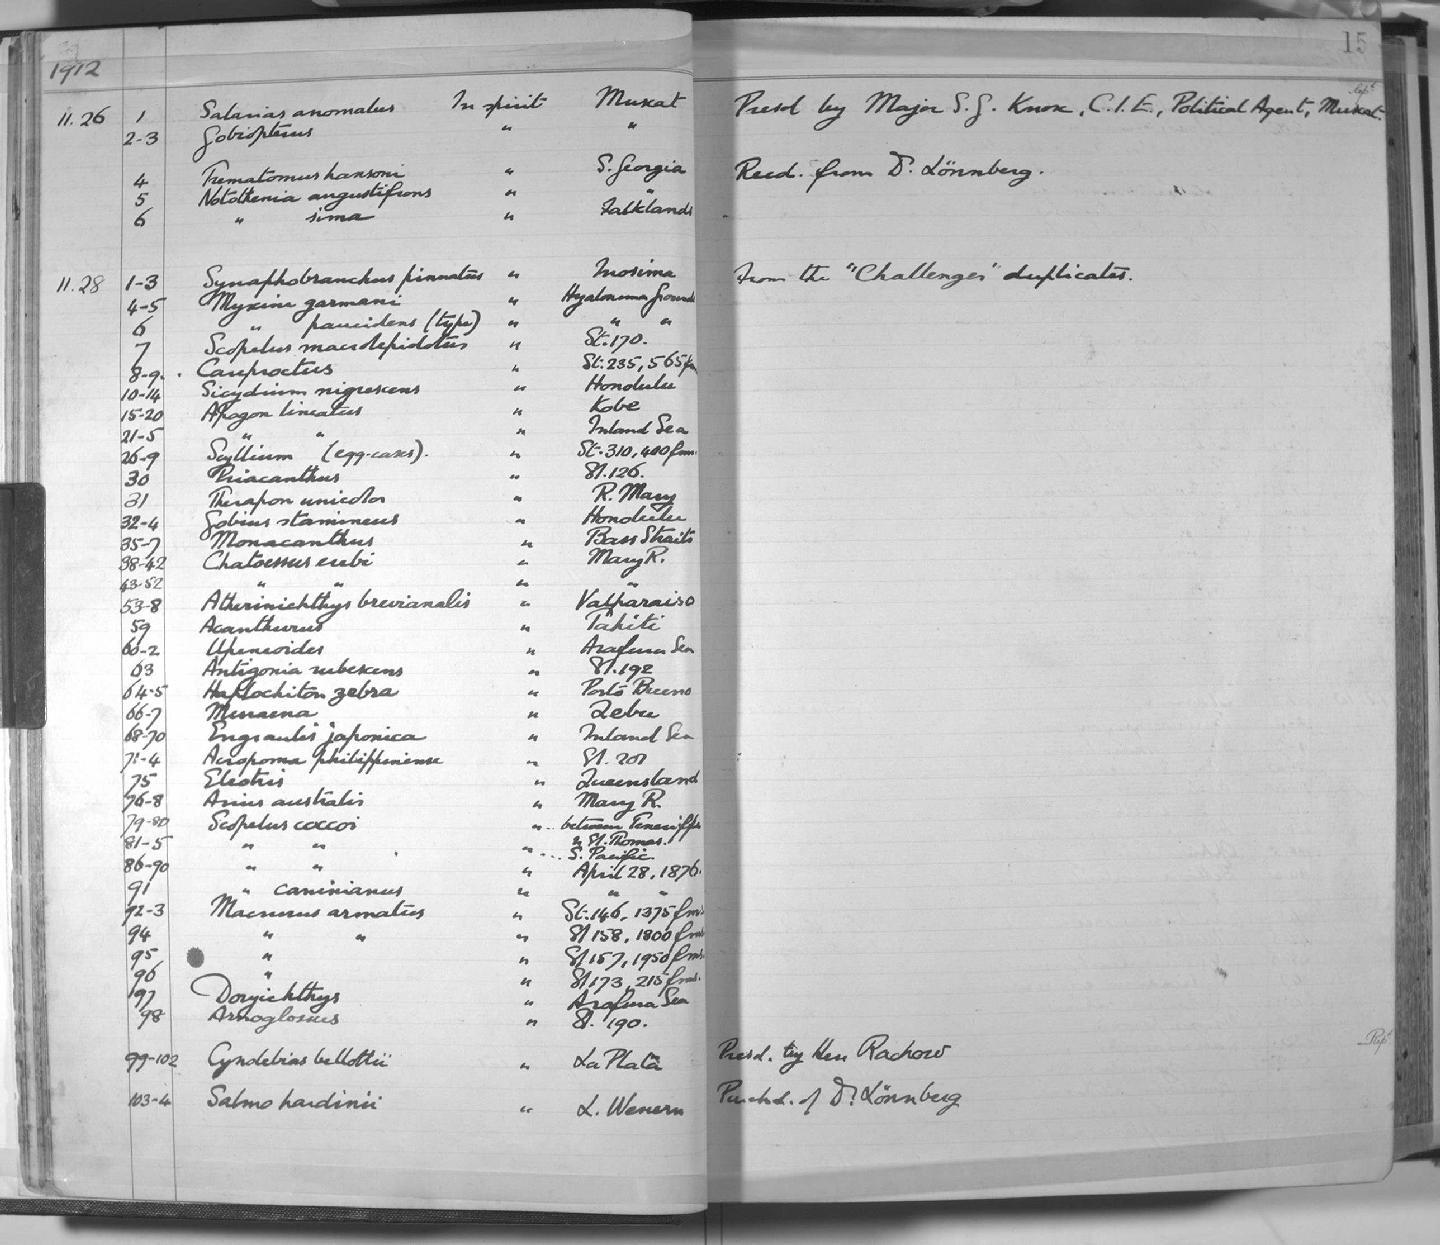 15
1912
11.26 1 Salarias anomalus In spirit Muscat Presd by Major S. G. Knox, C.I.E., Political Agent, Muscat.
2-3 Gobiopterus " "
4 Trematomus hansoni " S. Georgia Recd. from Dr. Lönnberg.
5 Notothenia angustifrons " "
6 " sima " Falklands
11.28 1-3 Synaphobranchus pinnatus " Inosima From the "Challenger" duplicates.
4-5 Myxine garmani " Hyalonema Grounds
6 " paucidens (type) " " "
7 Scopelus macrolepidotus " St. 170.
8-9. Careproctus " St. 235, 565 fm
10-14 Sicydium nigrescens " Honolulu
15-20 Apogon lineatus " Kobe
21-5 " " " Inland Sea
26-9 Scyllium (egg-cases). " St. 310, 400 fms.
30 Priacanthus " St. 126.
31 Therapon unicolor " R. Mary
32-4 Gobius stamineus " Honolulu
35-7 Monacanthus " Bass Straits
38-42 Chatoessus erebi " Mary R.
43-52 " " " "
53-8 Atherinichthys brevianalis " Valparaiso
59 Acanthurus " Tahiti
60-2 Upeneoides " Arafura Sea
63 Antigonia rubescens " St. 192
64-5 Haplochiton zebra " Porto Bueno
66-7 Muraena " Zebu
68-70 Engraulis japonica " Inland Sea
71-4 Acropoma philippinense " St. 201
75 Eleotris " Queensland
76-8 Arius australis " Mary R.
79-80 Scopelus coccoi " between Teneriffe
& St. Thomas.
81-5 " " " S. Pacific
86-90 " " " April 28, 1876.
91 " caninianus " " "
92-3 Macrurus armatus " St. 146, 1375 fms
94 " " " St 158, 1800 fms
95 " " St 157, 1950 fms.
96 " " St 173, 215 fms.
97 Doryichthys " Arafura Sea
98 Arnoglossus " St. 190.
99-102 Cynolebias bellottii " La Plata Presd. by Herr Rachow
103-4 Salmo hardinii " L. Wenern Purchd. of Dr. Lönnberg